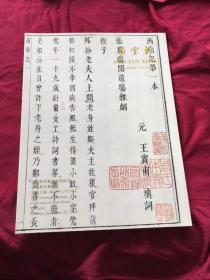 西廂記第一本
元 王實甫 填詞
張君瑞鬧道場雜劇
楔子
外扮老夫人上開老身姓鄭夫主姓崔官拜前
朝相國不幸因病告殂祗生得箇小姐小字鶯
鶯年一十九歲針黹女工詩詞書算無不能者
老相公在日曾許下老身之姪乃鄭尚書之長
西廂記